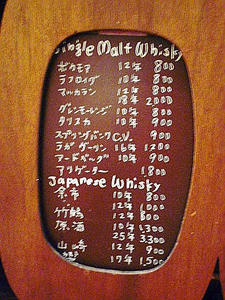 Single Malt Whisky
ボウモア 12年 800
ラフロイグ 10年 800
マッカラン 12年 800
18年 2,000
グレンモーレンジ 10年 800
タリスカ 10年 900
スプリングバンク C.V. 900
ラガヴーリン 16年 1200
アードベッグ 10年 900
アリゲーター 1,800
Japanese Whisky
余市 10年 800
12年
竹鶴 12年 800
原酒 10年 1,300
25年 3,300
山崎 12年 900
17年 1,500